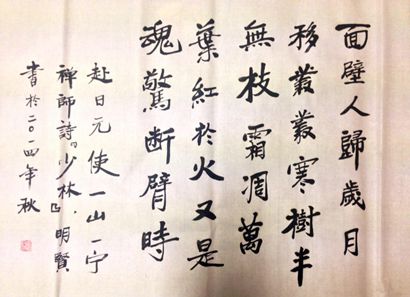 面壁人歸歲月
移叢叢寒樹半
無枝霜凋萬
葉紅於火又是
魂驚断臂時
赴日元使一山一宁
禅師詩『少林』.明賢
書於二〇一四年秋